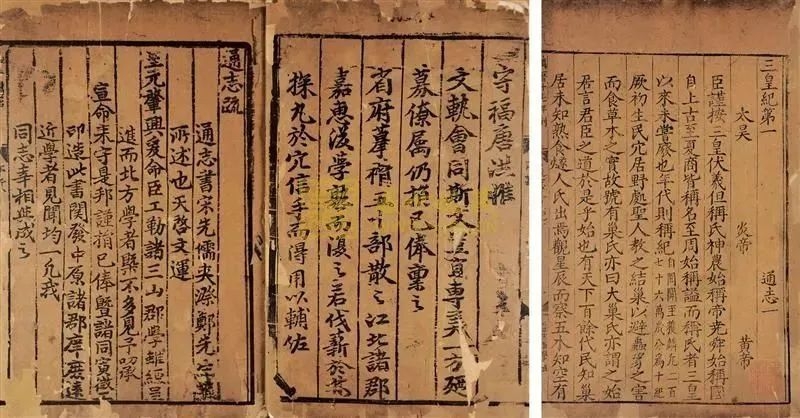 守福唐洪維
文軌會同斯文豈宜專美一方廼
募僚屬仍捐已俸稟之
省府摹褙五十部散之江北諸郡
嘉惠後學熟而復之若伐薪於
探丸於穴信手而得用以輔佐
通志疏
通志書宋先儒夾漈鄭先生
所述也天啓文運
聖元肇興爰命臣工勒諸三山郡學繼經呈
進而北方學者槩不多見予叨承
宣命来守是邦謹捐已俸暨諸同寅徵工
印造此書関發中原諸郡庠庶遠
近學者見聞均一允我
同志幸相與成之
三皇紀第一 通志一
太昊 炎帝 黃帝
臣謹按三皇伏羲但稱氏神農始稱帝堯舜始稱國
自上古至夏商皆稱名至周始稱諡而稱氏者三皇
以來未嘗廢也年代則稱紀自開闢至獲麟凡二百七十六萬歲分爲十紀
厥初生民穴居野處聖人教之結巢以避蟲豸之害
而食草木之實故號有巢氏亦曰大巢氏亦謂之始
君言君臣之道於是乎始也有天下百餘代民知巢
居未知熟食燧人氏出焉觀星辰而察五木知空有